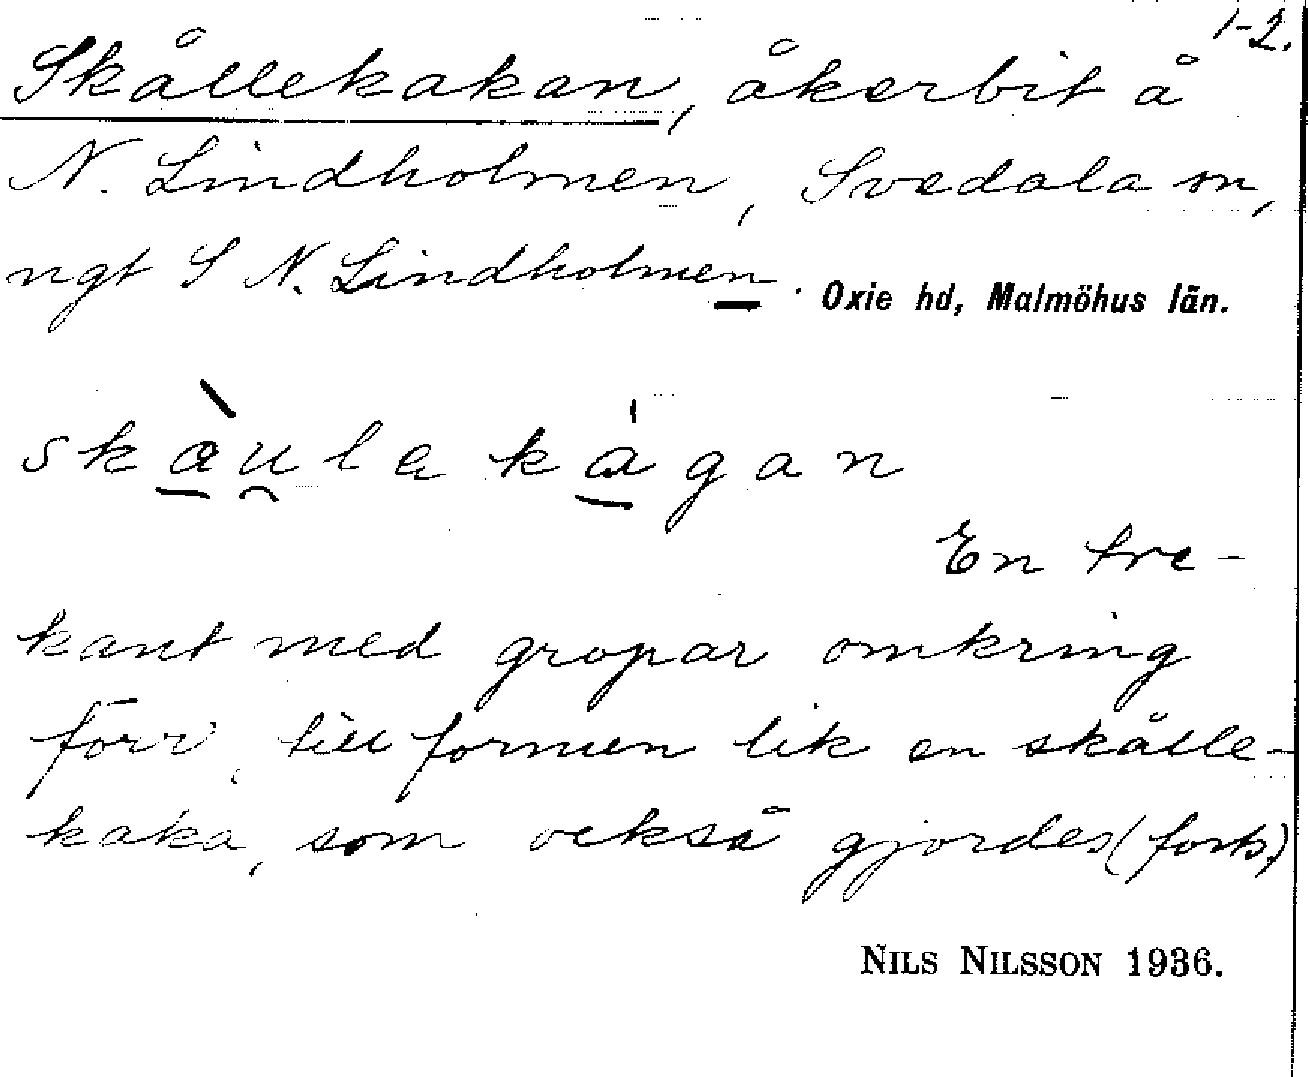 1-2.
Skållekakan, åkerbit å
N. Lindholmen, Svedala sn,
ngt S N. Lindholmen. Oxie hd, Malmöhus län.
skàu̯la kágan
En tre-
kant med gropar omkring
förr, till formen lik en skålle-
kaka, som också gjordes (forts.)
NILS NILSSON 1936.